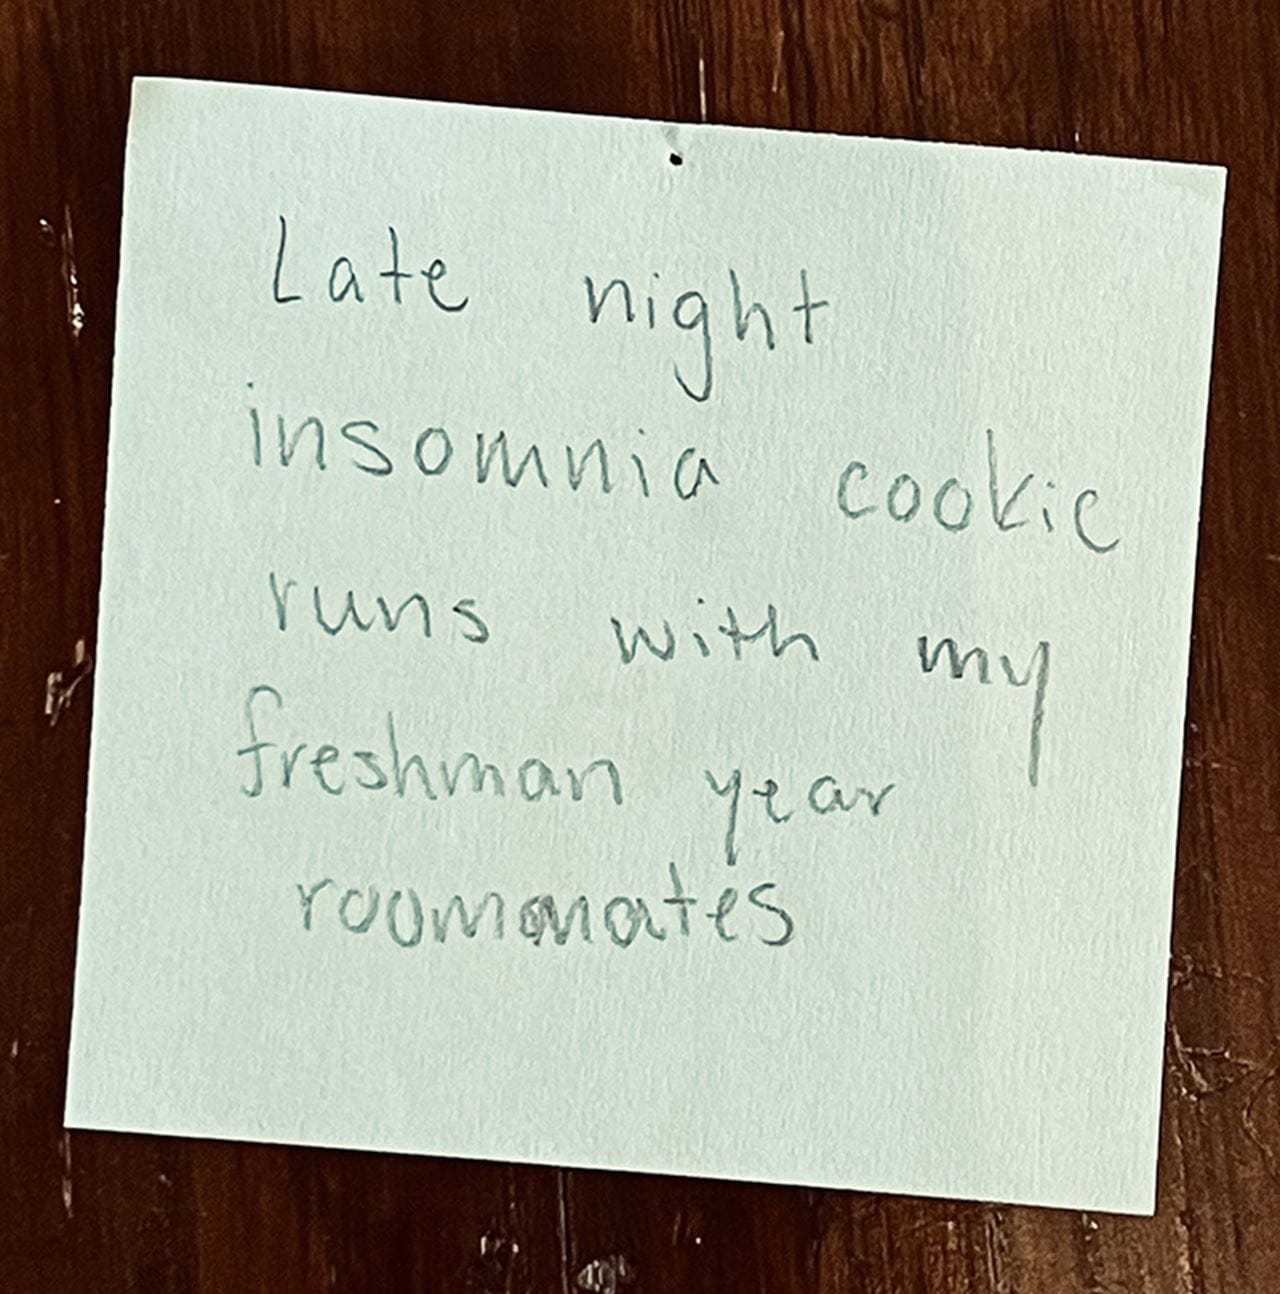 Late night
insomnia cookie
runs with my
freshman year
roommates